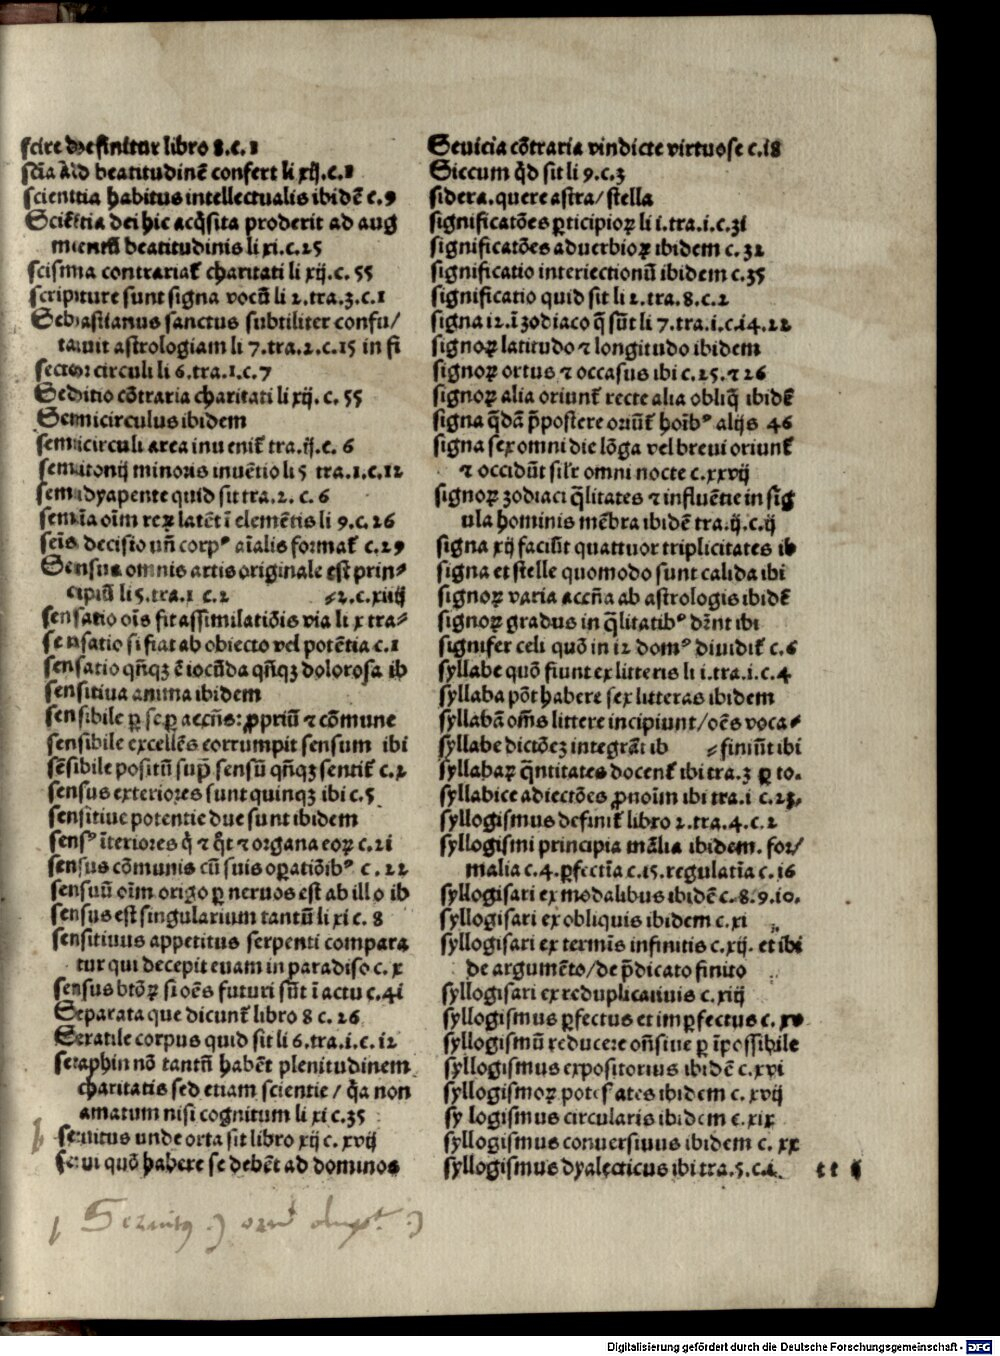 scire diffinitur libro 8.c.1
scīa ad beatitudinē confert li xij.c.1
scientia habitus intellectualis ibidē c.9
Sciētia dei hic acq̄sita proderit ad aug
mentū beatitudinis li xi.c.25
scisma contrariat̄ charitati li xij.c.55
scripture sunt signa vocū li 2.tra.3.c.1
Sebastianus sanctus subtiliter confu/
tauit astrologiam li 7.tra.2.c.15 in fi
sector circuli li 6.tra.1.c.7
Seditio cōtraria charitati li xij.c.55
Semicirculus ibidem
semicirculi area inuenit̄ tra.ij.c.6
semitonij minoris inuētio li 5 tra.1.c.12
semidyapente quid sit tra.2.c.6
semīa oīm reꝝ latēt ī elemētis li 9.c.26
seīs decisio vn̄ corpꝰ aīalis format̄ c.29
Sensus omnis artis originale est prin⸗
cipiū li 5.tra.1 c.2 ⸗2.c.xiiij
sensatio oīs fit assimilatiōis via li x tra⸗
sensatio si fiat ab obiecto vel potētia c.1
sensatio qn̄qꝫ ē iocūda qn̄qꝫ dolorosa ib
sensitiua anima ibidem
sensibile ꝑ se ꝑ accn̄s: ꝓpriū ⁊ cōmune
sensibile excellēs corrumpit sensum ibi
sēsibile positū sup̄ sensū qn̄qꝫ sentit̄ c.2
sensus exteriores sunt quinqꝫ ibi c.5
sensitiue potentie due sunt ibidem
sensꝰ īteriores q̄ ⁊ q̄t ⁊ organa eoꝝ c.21
sensus cōmunis cū suis oꝑatiōibꝰ c.22
sensuū oīm origo ꝑ neruos est ab illo ib
sensus est singularium tantū li xi c.8
sensitiuus appetitus serpenti compara
tur qui decepit euam in paradiso c.x
sensus btōꝝ si oēs futuri sūt ī actu c.41
Separata que dicunt̄ libro 8 c.26
Seratile corpus quid sit li 6.tra.1.c.12
seraphin nō tantū habēt plenitudinem
charitatis sed etiam scientie / q̄a non
amatum nisi cognitum li xi c.35
seruitus unde orta sit libro xij c.xvij
serui quō habere se debēt ad dominos
Seuicia cōtraria vindicte virtuose c.18
Siccum q̄d sit li 9.c.3
sidera.quere astra/ stella
significatōes ꝑticipioꝝ li 1.tra.1.c.31
significatōes aduerbioꝝ ibidem c.32
significatio interiectionū ibidem c.35
significatio quid sit li 2.tra.8.c.2
signa 12.ī zodiaco q̄ sūt li 7.tra.1.c.14.22
signoꝝ latitudo ⁊ longitudo ibidem
signoꝝ ortus ⁊ occasus ibi c.25.⁊ 26
signoꝝ alia oriunt̄ recte alia obliq̄ ibidē
signa q̄dā p̄postere oriūt̄ hoībꝰ alijs 46
signa sex omni die lōga vel breui oriunt̄
⁊ occidūt sil'r omni nocte c.xxvij
signoꝝ zodiaci q̄litates ⁊ influētie in sīg
ula hominis mēbra ibidē tra.ij.c.ij
signa xij faciūt quattuor triplicitates ib
signa et stelle quomodo sunt calida ibi
signoꝝ varia accn̄a ab astrologis ibidē
signoꝝ gradus in q̄litatibꝰ dr̄nt ibi
signifer celi quō in 12 domꝰ diuidit̄ c.6
syllabe quō fiunt ex litteris li 1.tra.1.c.4
syllaba pōt habere sex litteras ibidem
syllabā om̄s littere incipiunt/oēs voca⸗
syllabe dictōeꝫ integrāt ib ⸗finiūt ibi
syllabaꝝ q̄ntitates docent̄ ibi tra.3 ꝑ to.
syllabice adiectōes ꝓnoīm ibi tra.1 c.23.
syllogismus definit̄ libro 2.tra.4.c.2
syllogismi principia mālia ibidem. for/
malia c.4.ꝑfectīa c.15.regulatīa c.16
syllogisari ex modalibus ibidē c.8.9.10.
syllogisari ex obliquis ibidem c.xi
syllogisari ex termīs infinitis c.xij. et ibi
de argumēto/de p̄dicato finito
syllogisari ex reduplicatiuis c.xiij
syllogismus ꝑfectus et imꝑfectus c.xv
syllogismū reducere on̄siue ꝑ īpossibile
syllogismus expositorius ibidē c.xvi
syllogismoꝝ potestates ibidem c.xvij
syllogismus circularis ibidem c.xix
syllogismus conuersiuus ibidem c.xx
syllogismus dyalecticus ibi tra.5.c.1. tt
Digitalisierung gefördert durch die Deutsche Forschungsgemeinschaft - DFG